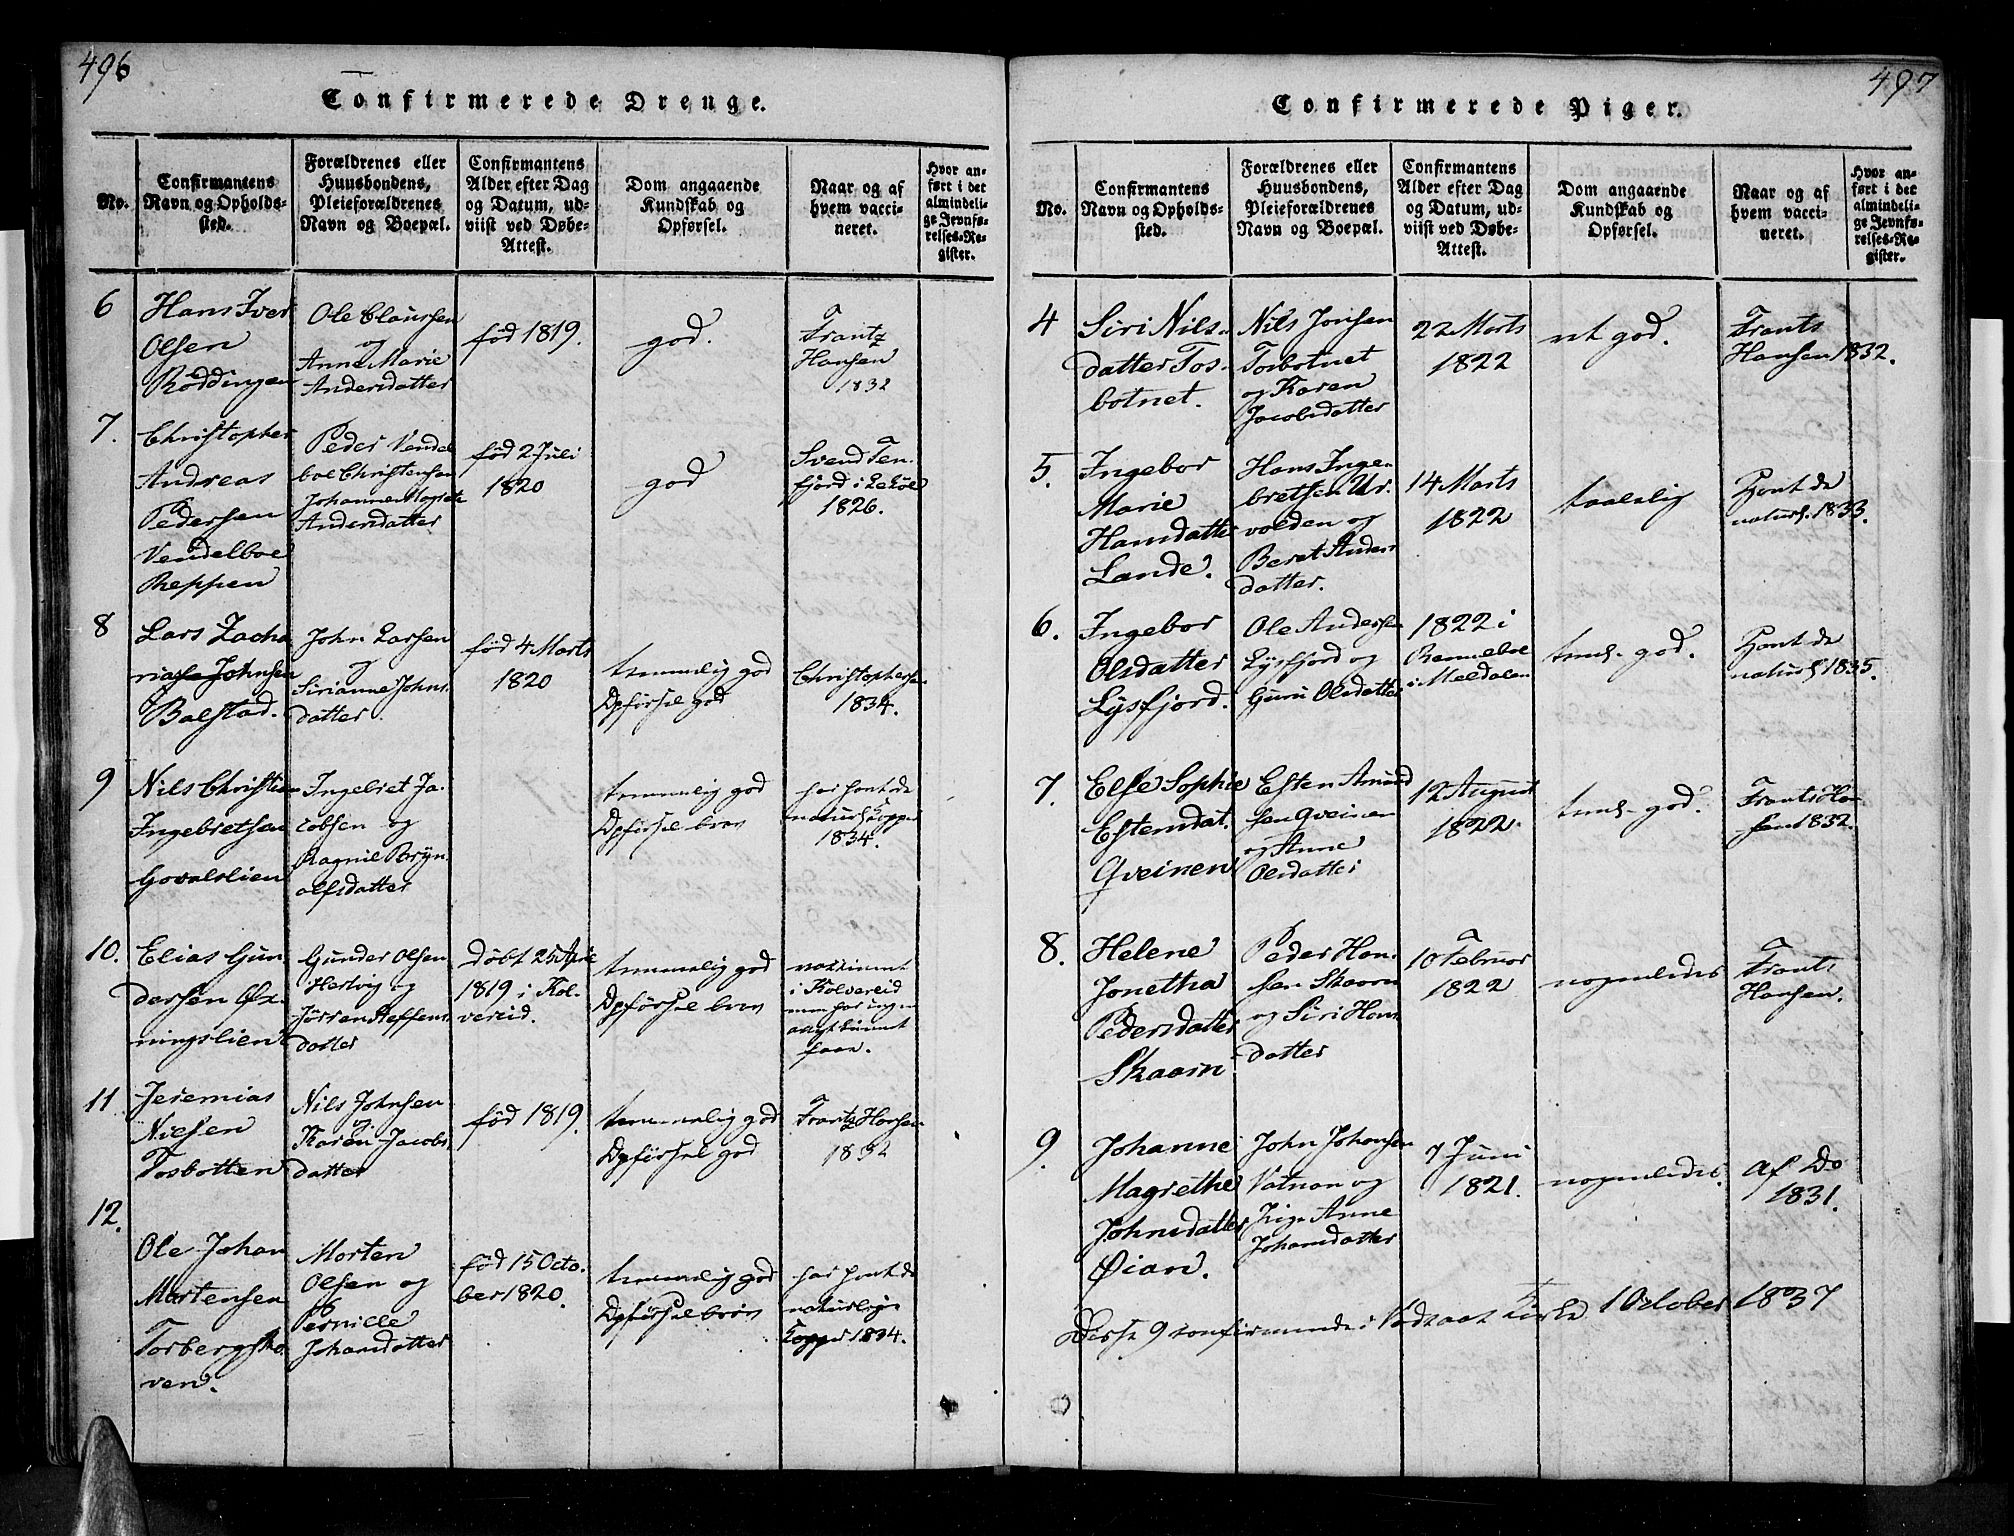 496
Confirmerede Drenge.
No.
Confirmantens
Navn og Opholds-
sted.
Forældrenes eller
Huusbondens,
Pleieforældrenes
Navn og Boepæl.
Confirmantens
Alder efter Dag
og Datum, ud-
viist ved Døbe-
Attest.
Dom angaaende
Kundskab og
Opførsel.
Naar og af
hvem vacci-
neret.
Hvor an-
ført i det
almindeli-
ge Jevnfø-
relses-Re-
gister.
6
Hans Iver
Olsen
Røddingen
Ole Claussen
og
Anne Marie
Andersdatter
fød 1819.
god.
Frantz
Hansen
1832
7.
Christopher
Andreas
Pedersen
Vendelboe
Reppen
Peder Vendel
boe Christensen
Johanne Magrete
Andersdatter
fød 2 Juli
1820
god
Svend Ten-
fjord i Lekøe
1826.
8
Lars Zacha
riasse Johnsen
Balstad.
John Larsen
og
Sirianne Johns-
datter.
fød 4 Marts
1820
temmelig god
Opførsel god
Christophersen
1834.
9
Nils Christian
Ingebretsen
Govalslien
Ingebret Ja-
cobsen og
Ragnil Bryn-
olfsdatter
temmelig god
Opførsel brav
har havt de
naturl. Kopper
1834.
10.
Elias Gun
dersen Øx-
ningslien
Gunder Olsen
Hartvig og
Jørren Steffens
datter
Døbt 25 Apr
1819 i Kol-
vereid.
temmelig god
Opførsel brav
vaccineret
i Kolvereid
men har ingen
attest kunnet
faae.
11
Jeremias
Nilsen
Tosbotten
Nils Johnsen
og
Karen Jacobs
datter
fød 1819.
temmelig god
Opførsel god
Frantz Hansen
1832
12.
Ole Johan
Mortensen
Torbergsko-
ven.
Morten
Olsen og
Pernille
Johansdatter
fød 15 Octo-
ber 1820.
temmelig god
Opførsel brav
har havt de
naturlige
Kopper 1834.
497
Confirmerede Piger.
No.
Confirmantens
Navn og Opholds-
sted.
Forældrenes eller
Huusbondens,
Pleieforældrenes
Navn og Boepæl.
Confirmantens
Alder efter Dag
og Datum, ud-
viist ved Døbe-
Attest.
Dom angaaende
Kundskab og
Opførsel.
Naar og af
hvem vacci-
neret.
Hvor an-
ført i det
almindeli-
ge Jevnfø-
relses-Re-
gister.
4
Siri Nils-
datter Tos-
botnet.
Nils Jonsen
Tosbotnet
og Karen
Jacobsdatter
22 Marts
1822
god.
Frants
Hansen 1832.
5.
Ingebor
Marie
Hansdatter
Lande.
Hans Inge-
bretsen Ur-
volden og
Beret Anders
datter.
14 Marts
1822
taalelig
Havt de
naturl. 1833.
6.
Ingebor
Olsdatter
Lysfjord.
Ole Andersen
Lysfjord og
Guru Olsdatter
1822 i
Renneboe
i Meldalen
teml. god.
Havt de
naturl 1835.
7.
Else Sophie
Estensdat.
Qveinen
Esten Amund
sen Qveinen
og Anne
Olsdatter
12 August
1822.
teml. god.
Frants Han
sen 1832.
8.
Helene
Jonetha
Pedersdatter
Skaarn
Peder Han-
sen Skaarn
og Siri Hans
datter
10 Februar
1822
nogenledes
Frants
Hansen.
9.
Johanne
Magrethe
Johnsdatter
Øian.
John Johansen
Vatnan og
Anne
Johansdatter
7 Juni
1821.
nogenledes.
Af Do
1831.
Disse 9 confirmerede i Vadsaas Kirke 1 October 1837